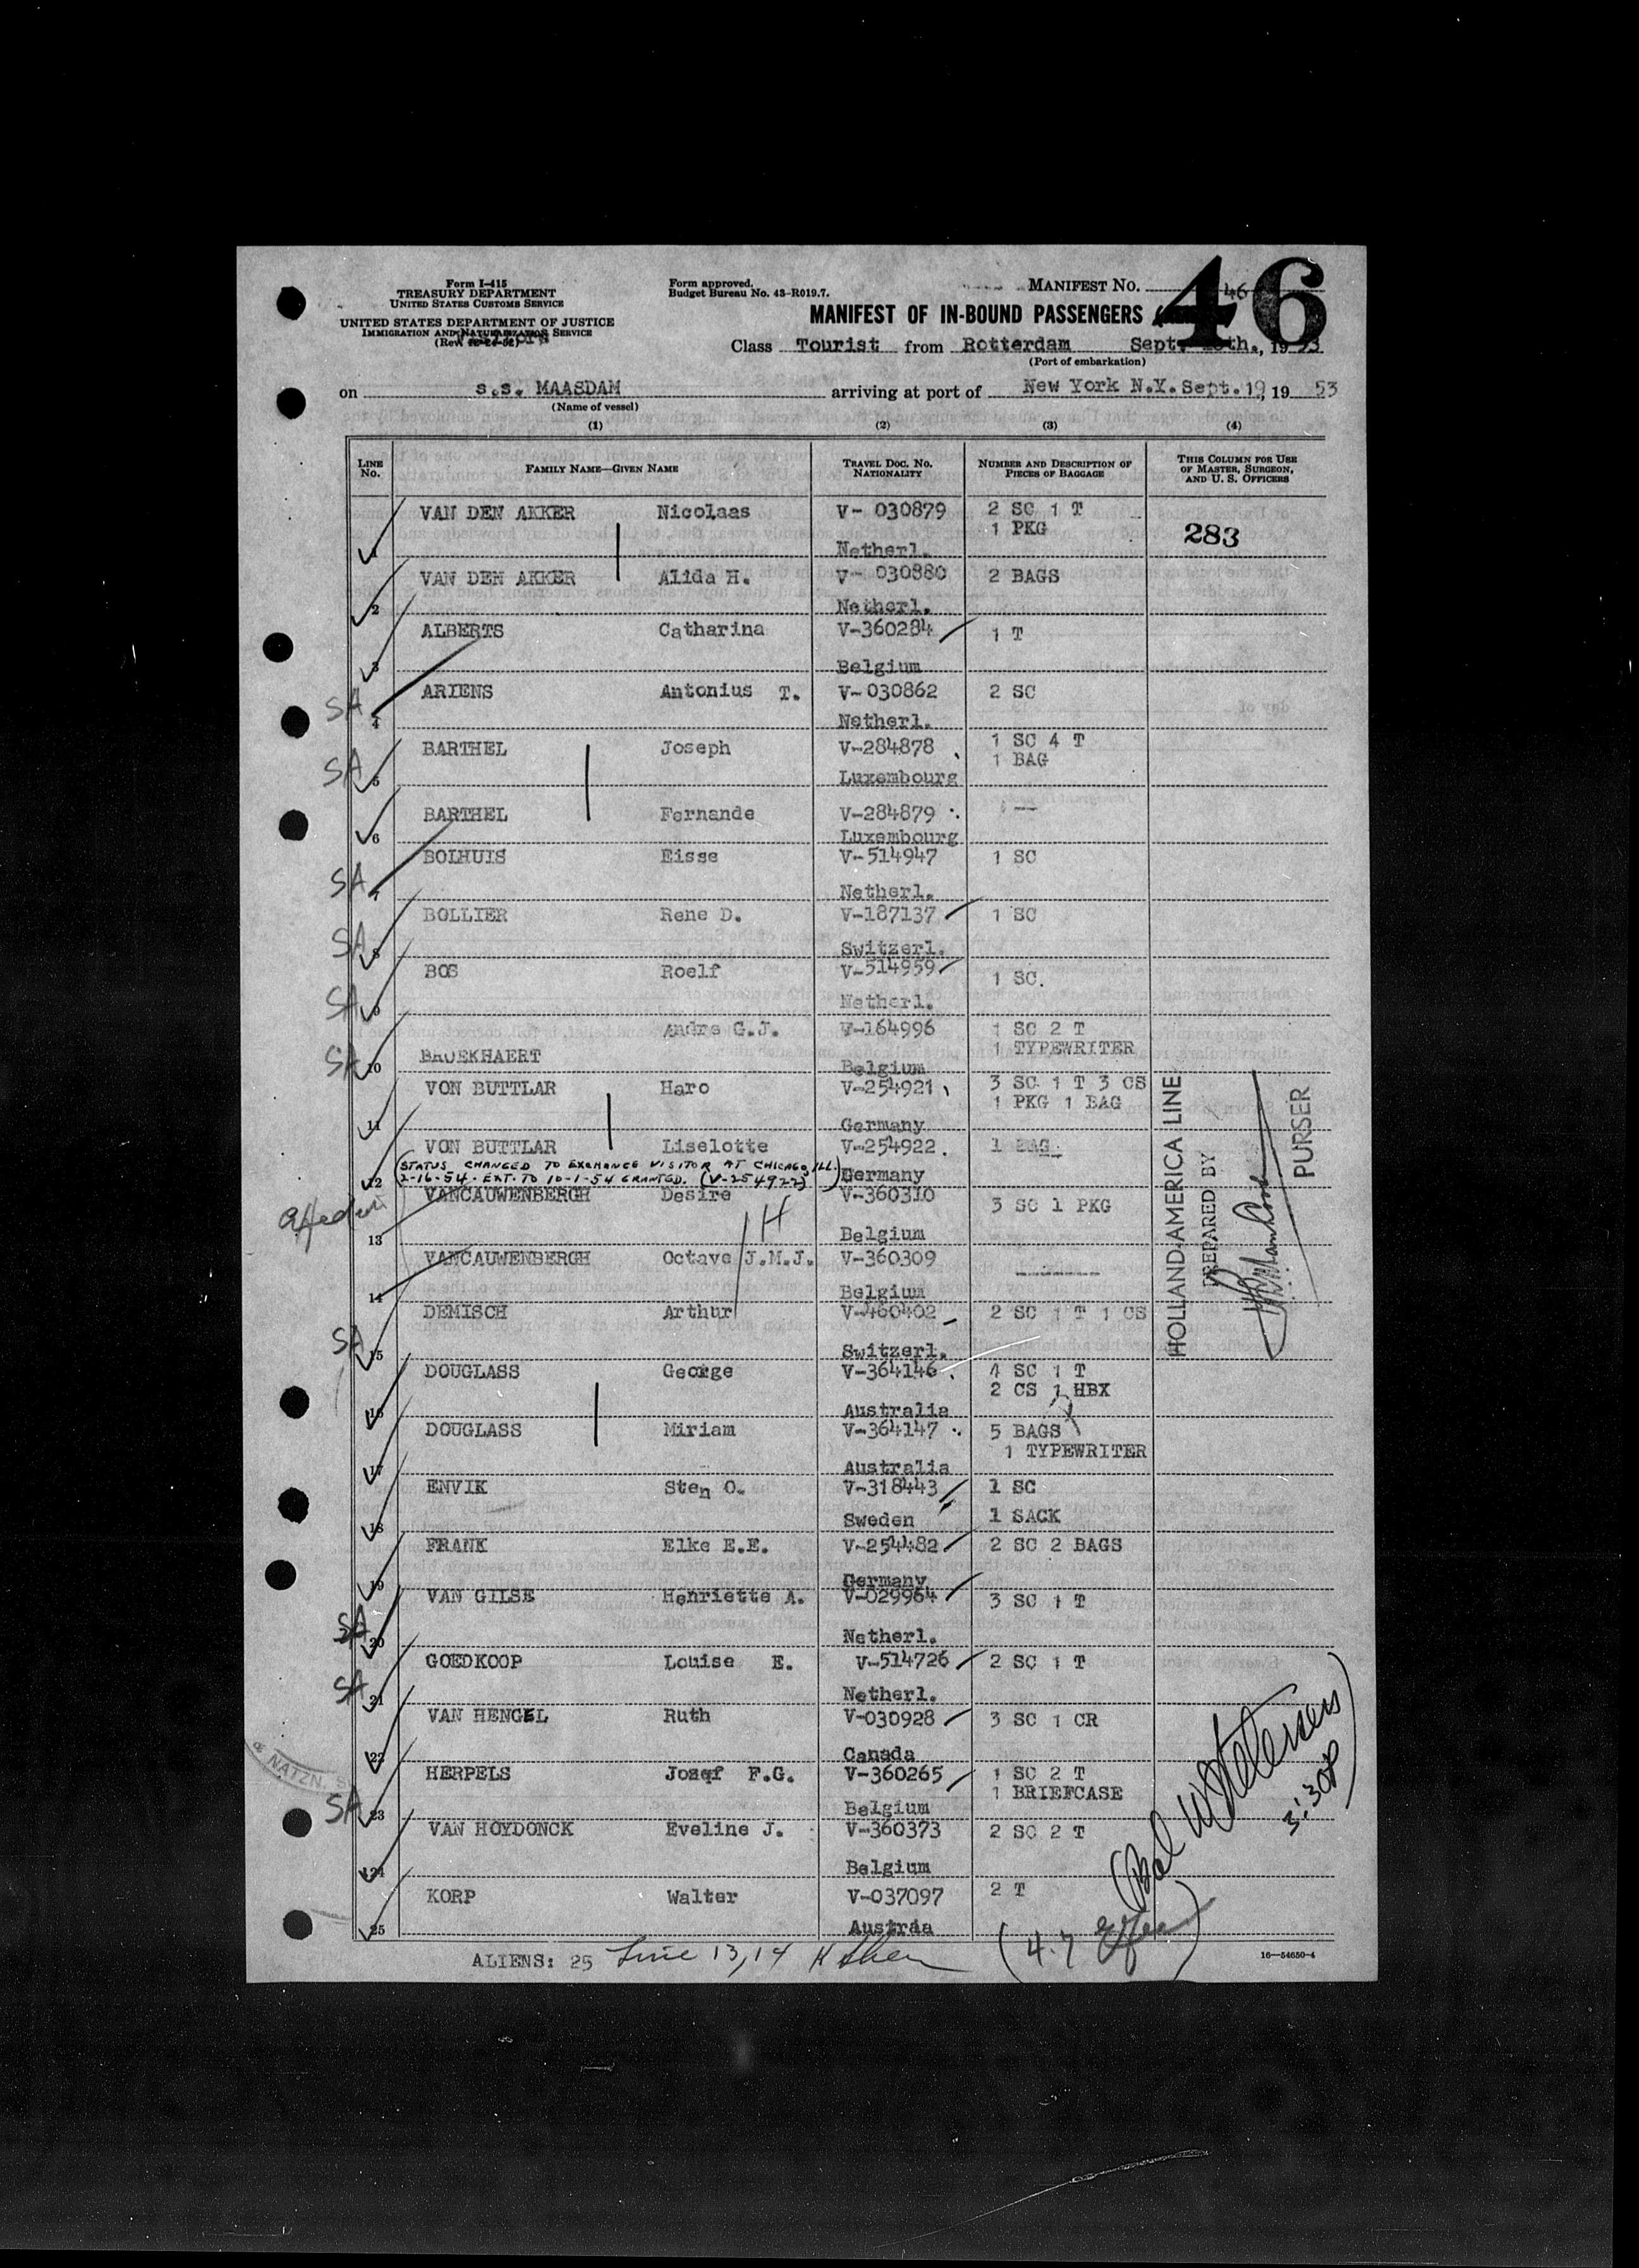 Form I-415
TREASURY DEPARTMENT
UNITED STATES CUSTOMS SERVICE
UNITED STATES DEPARTMENT OF JUSTICE
IMMIGRATION AND NATURALIZATION SERVICE
Form approved.
Budget Bureau No. 43-R019.7.
MANIFEST NO. 46
46
MANIFEST OF IN-BOUND PASSENGERS
Class Tourist from Rotterdam Sept. 1953
(Port of embarkation)
on s.s. MAASDAM arriving at port of New York N.Y. Sept. 19, 19 53
(Name of vessel)
(1) (2) (3) (4)
LINE NO. FAMILY NAME—GIVEN NAME TRAVEL DOC. NO. NATIONALITY NUMBER AND DESCRIPTION OF PIECES OF BAGGAGE THIS COLUMN FOR USE OF MASTER, SURGEON, AND U. S. OFFICERS
VAN DEN AKKER Nicolaas V- 030879 2 SC 1 T
1 PKG 283
1 Netherl.
VAN DEN AKKER Alida H. V- 030880 2 BAGS
2 Netherl.
ALBERTS Catharina V-360284 1 T
3 Belgium
ARIENS Antonius T. V-030862 2 SC
SA 4 Netherl.
BARTHEL Joseph V-284878 1 SC 4 T
1 BAG
SA 5 Luxembourg
BARTHEL Fernande V-284879 --
6 Luxembourg
BOLHUIS Eisse V-514947 1 SC
SA 7 Netherl.
BOLLIER Rene D. V-187137 1 SC
SA 8 Switzerl.
BOS Roelf V-514959 1 SC.
SA 9 Netherl.
Andre G.J. V-164996 1 SC 2 T
BROEKHAERT 1 TYPEWRITER
SA 10 Belgium
VON BUTTLAR Haro V-254921 3 SC 1 T 3 CS
1 PKG 1 BAG
11 Germany
VON BUTTLAR Liselotte V-254922 1 BAG
(STATUS CHANGED TO EXCHANGE VISITOR AT CHICAGO, ILL.
12 2-16-54. EXT. TO 10-1-54 GRANTED. (V-254922)) Germany
VANCAUWENBERGH Desire V-360310 3 SC 1 PKG
13 H Belgium
VANCAUWENBERGH Octave J.M.J. V-360309
14 Belgium
DEMISCH Arthur V-460402 2 SC 1 T 1 CS
SA 15 Switzerl.
DOUGLASS George V-364146 4 SC 1 T
2 CS 1 HBX
16 Australia
DOUGLASS Miriam V-364147 5 BAGS
1 TYPEWRITER
17 Australia
ENVIK Sten O. V-318443 1 SC
18 Sweden 1 SACK
FRANK Elke E.E. V-254482 2 SC 2 BAGS
19 Germany
VAN GILSE Henriette A. V-029964 3 SC 1 T
SA 20 Netherl.
GOEDKOOP Louise E. V-514726 2 SC 1 T
SA 21 Netherl.
VAN HENGEL Ruth V-030928 3 SC 1 CR
22 Canada
HERPELS Jozef F.G. V-360265 1 SC 2 T
1 BRIEFCASE
SA 23 Belgium
VAN HOYDONCK Eveline J. V-360373 2 SC 2 T
24 Belgium
KORP Walter V-037097 2 T
25 Austria
HOLLAND-AMERICA LINE
PREPARED BY
PURSER
3:30P
ALIENS: 25 Line 13, 14
16—54650-4